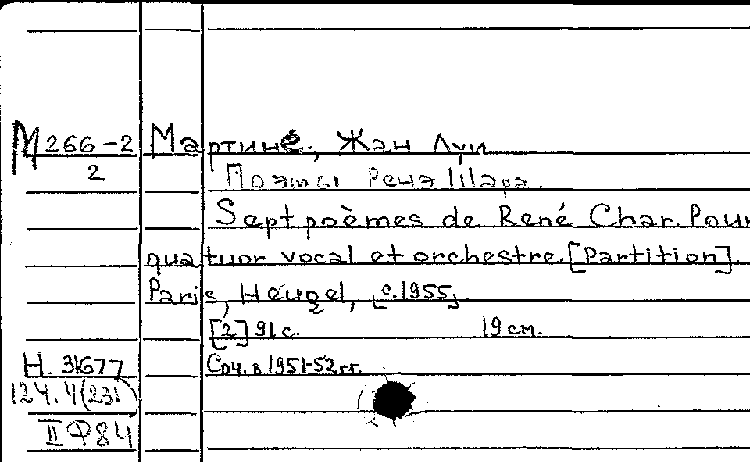 М266-2 Мартинé, Жан Луи
2
Поэмы Рена Шара.
Sept poèmes de René Char. Pour
quatuor vocal et orchestre. [Partition].
Paris, Heugel, [c.1955]
[2] 91 с. 19 см.
Н. 31677 Соч. в 1951-52 гг.
124.4(231)
II Ф84